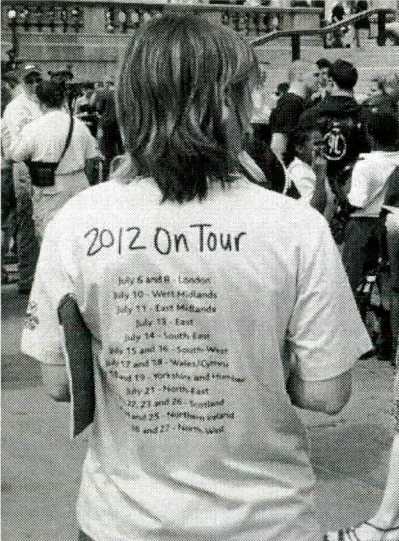 2012 On Tour
July 6 and 8 - London
July 10 - West Midlands
July 11 - East Midlands
July 13 - East
July 14 - South-East
July 15 and 16 - South-West
July 17 and 18 - Wales/Cymru
and 19 - Yorkshire and Humber
July 21 - North-East
22, 23 and 26 - Scotland
and 25 - Northern Ireland
and 27 - North West